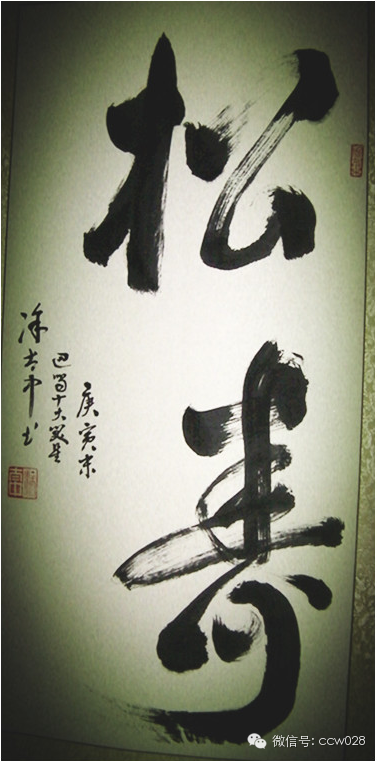 松寿
庚寅末
巴蜀十大笑星
涂太中书
微信号: ccw028